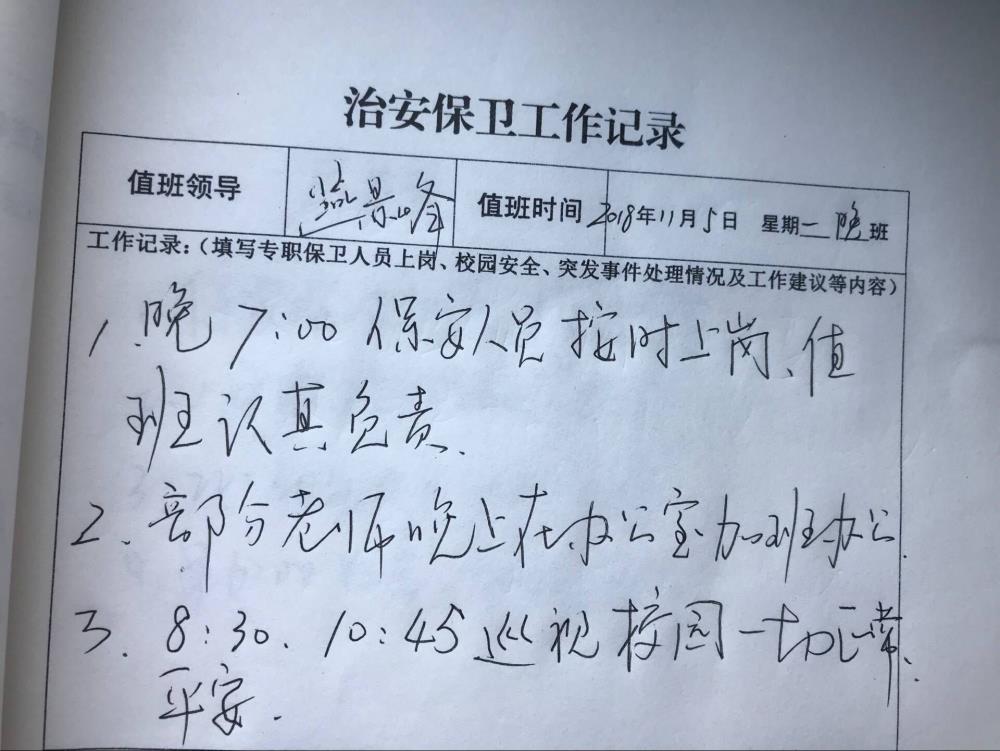 治安保卫工作记录
值班领导 值班时间 2018年11月5日 星期一 晚班
工作记录：（填写专职保卫人员上岗、校园安全、突发事件处理情况及工作建议等内容）
1、晚7:00保安人员按时上岗、值
班认真负责.
2、部分老师晚上在办公室加班办公.
3、8:30、10:45巡视校园一切正常、
平安.